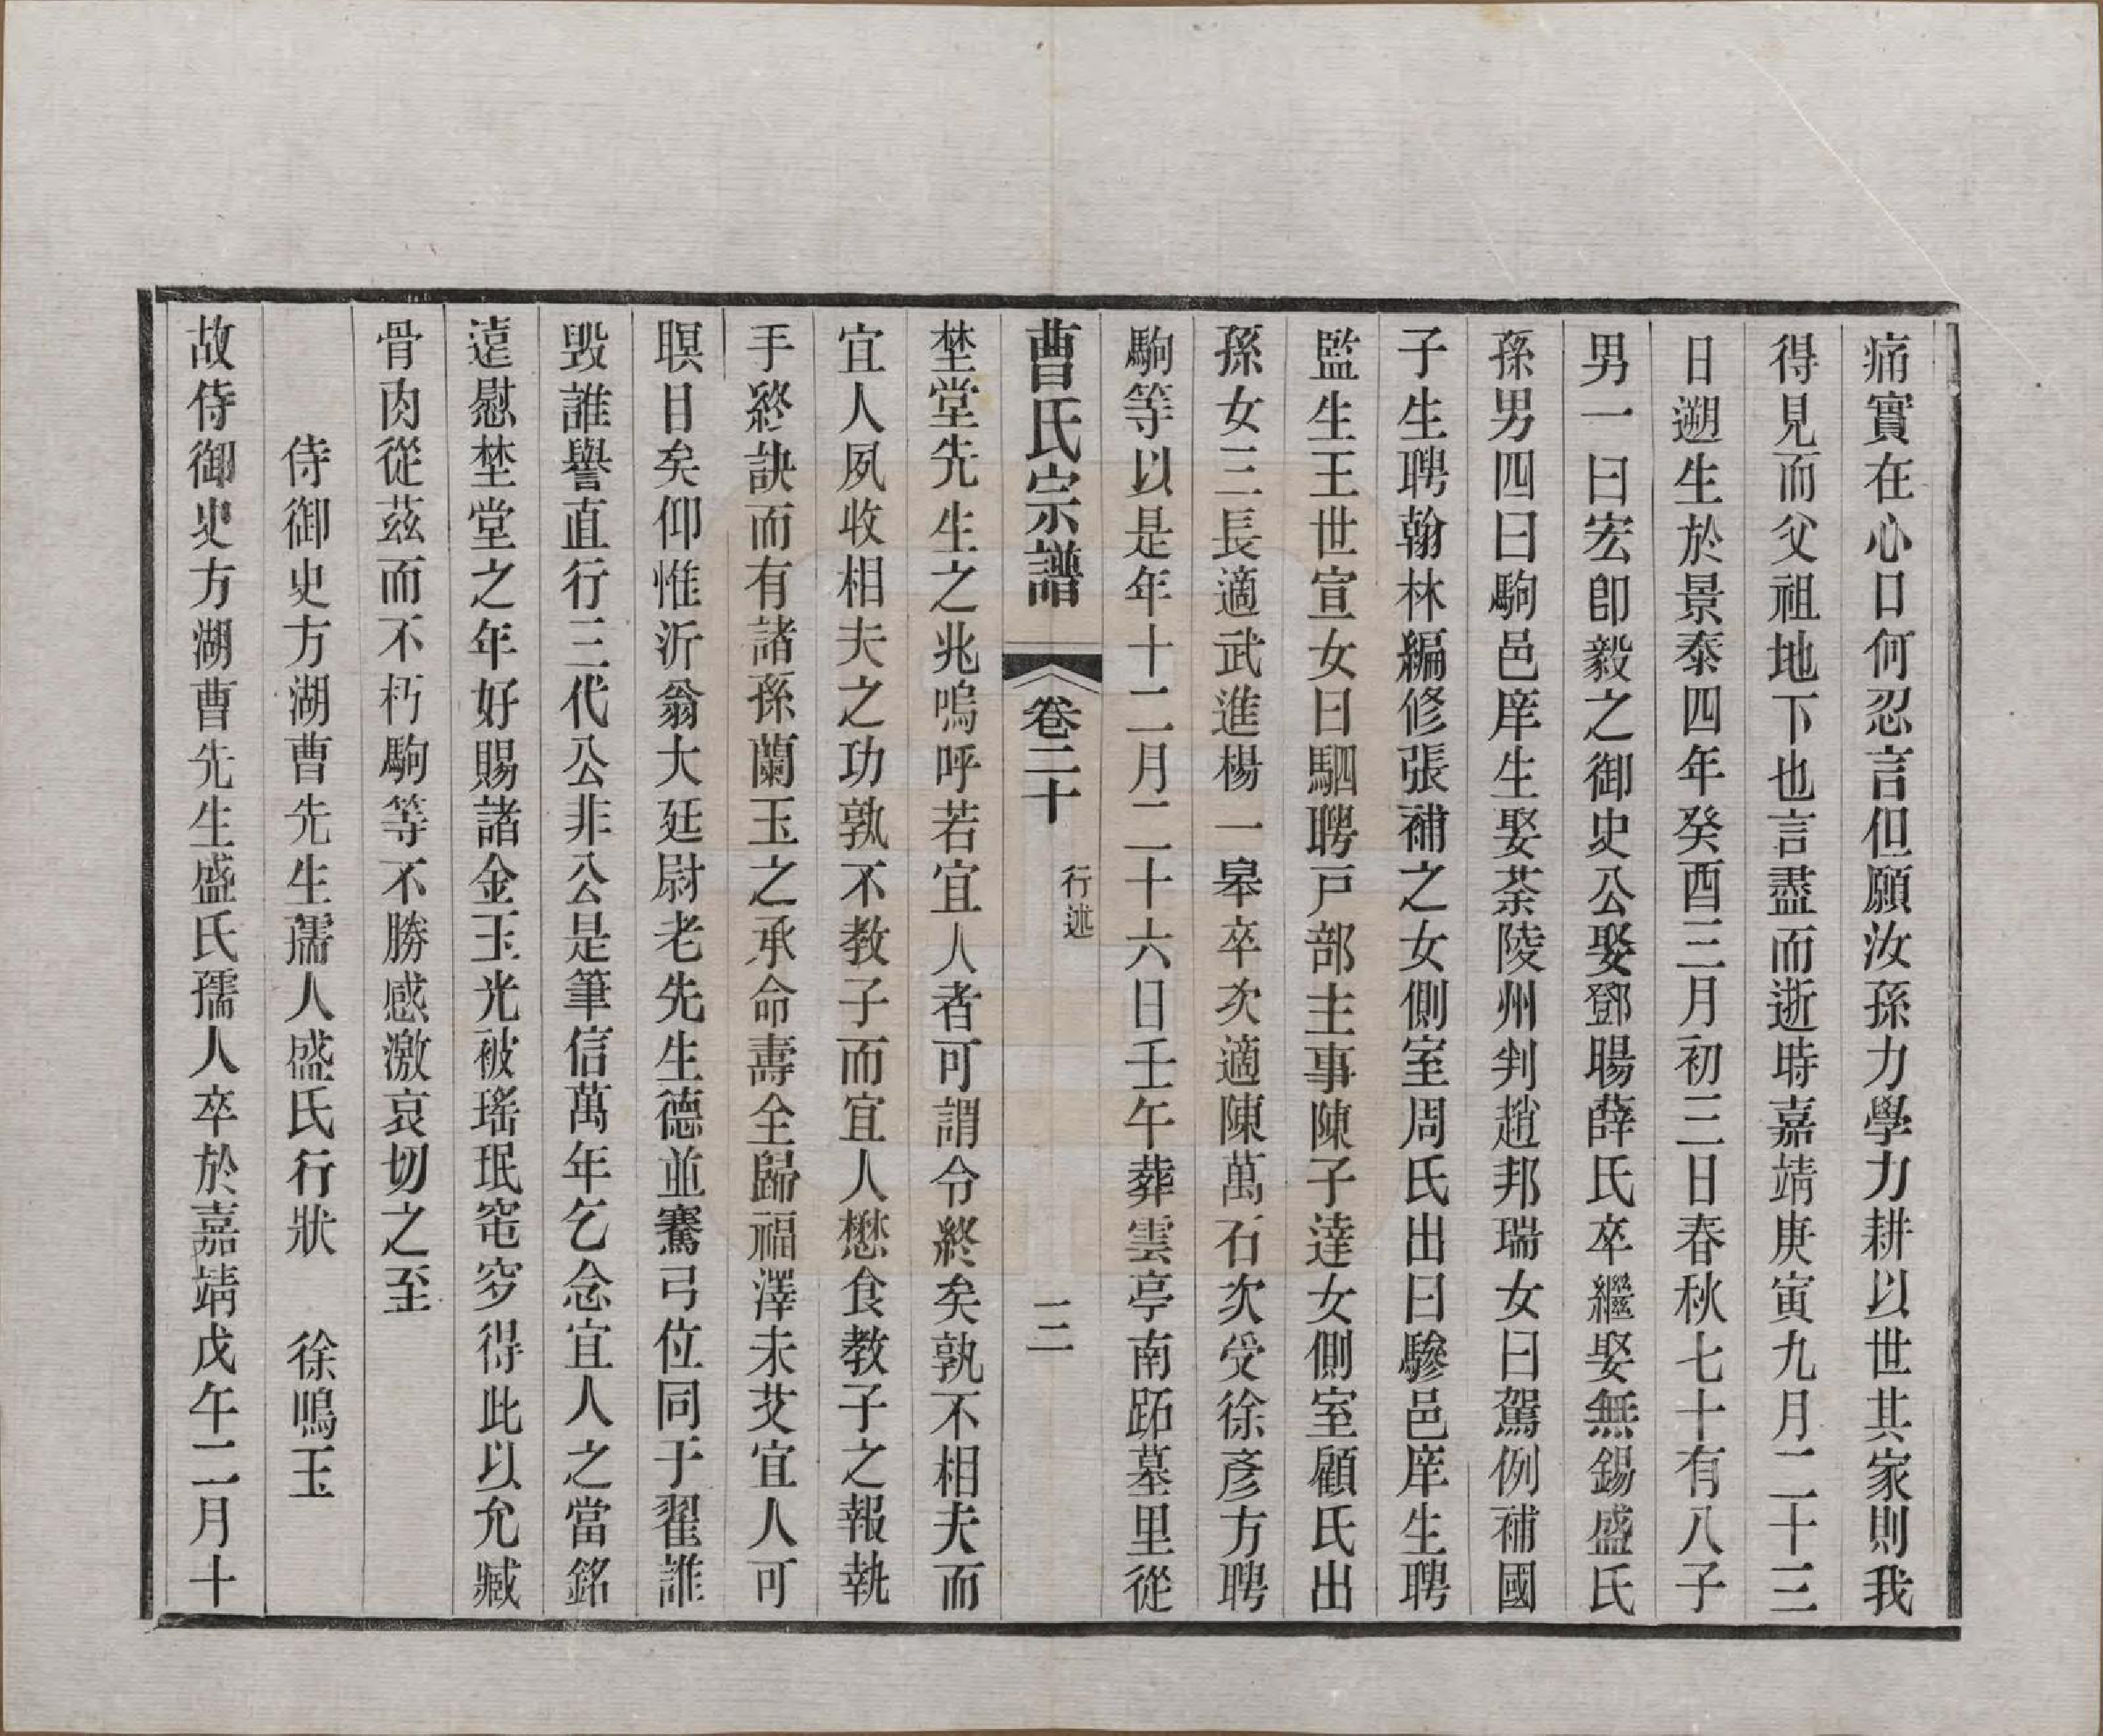 痛實在心口何忍言但願汝孫力學力耕以世其家則我
得見而父祖地下也言盡而逝時嘉靖庚寅九月二十三
日遡生於景泰四年癸酉三月初三日春秋七十有八子
男一曰宏卽毅之御史公娶鄧暘薛氏卒繼娶無錫盛氏
孫男四曰駒邑庠生娶荼陵州判趙邦瑞女曰駕例補國
子生聘翰林編修張補之女側室周氏出曰驂邑庠生聘
監生王世宣女曰駟聘戸部主事陳子達女側室顧氏出
孫女三長適武進楊一皋卒次適陳萬石次受徐彥方聘
駒等以是年十二月二十六日壬午葬雲亭南跖墓里從
曹氏宗譜 卷二十 行述 三
埜堂先生之兆嗚呼若宜人者可謂令終矣孰不相夫而
宜人夙收相夫之功孰不教子而宜人懋食教子之報執
手終訣而有諸孫蘭玉之承命壽全歸福澤未艾宜人可
瞑目矣仰惟沂翁大廷尉老先生德並騫弓位同于翟誰
毁誰譽直行三代公非公是筆信萬年乞念宜人之當銘
遠慰埜堂之年好賜諸金玉光被瑤珉窀穸得此以允臧
骨肉從茲而不朽駒等不勝感激哀切之至
侍御史方湖曹先生孺人盛氏行狀 徐鳴玉
故侍御史方湖曹先生盛氏孺人卒於嘉靖戊午二月十